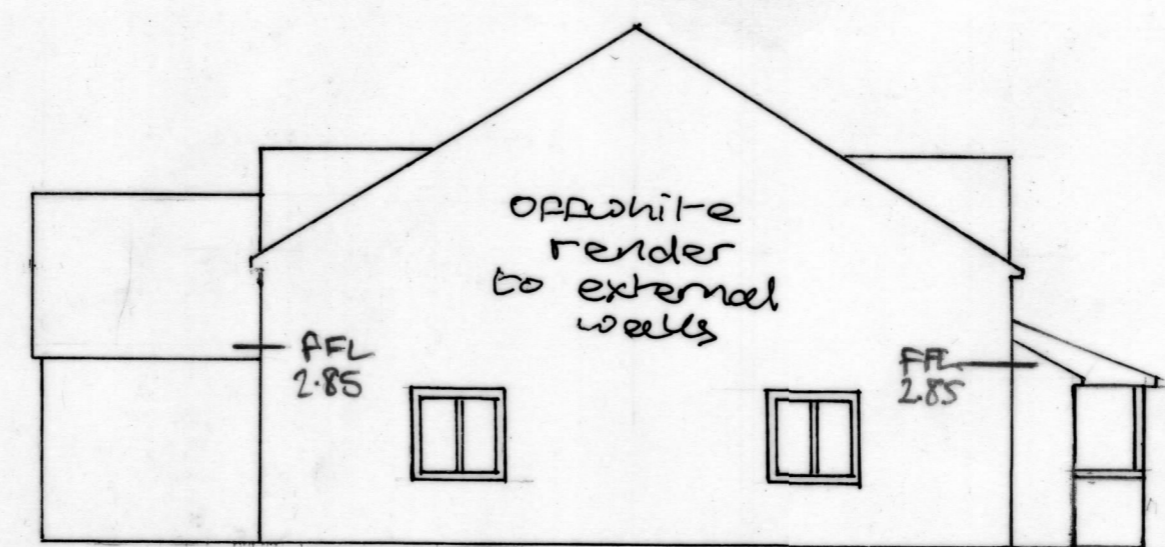 offwhite
render
to external
walls
FFL
2.85
FFL
2.85